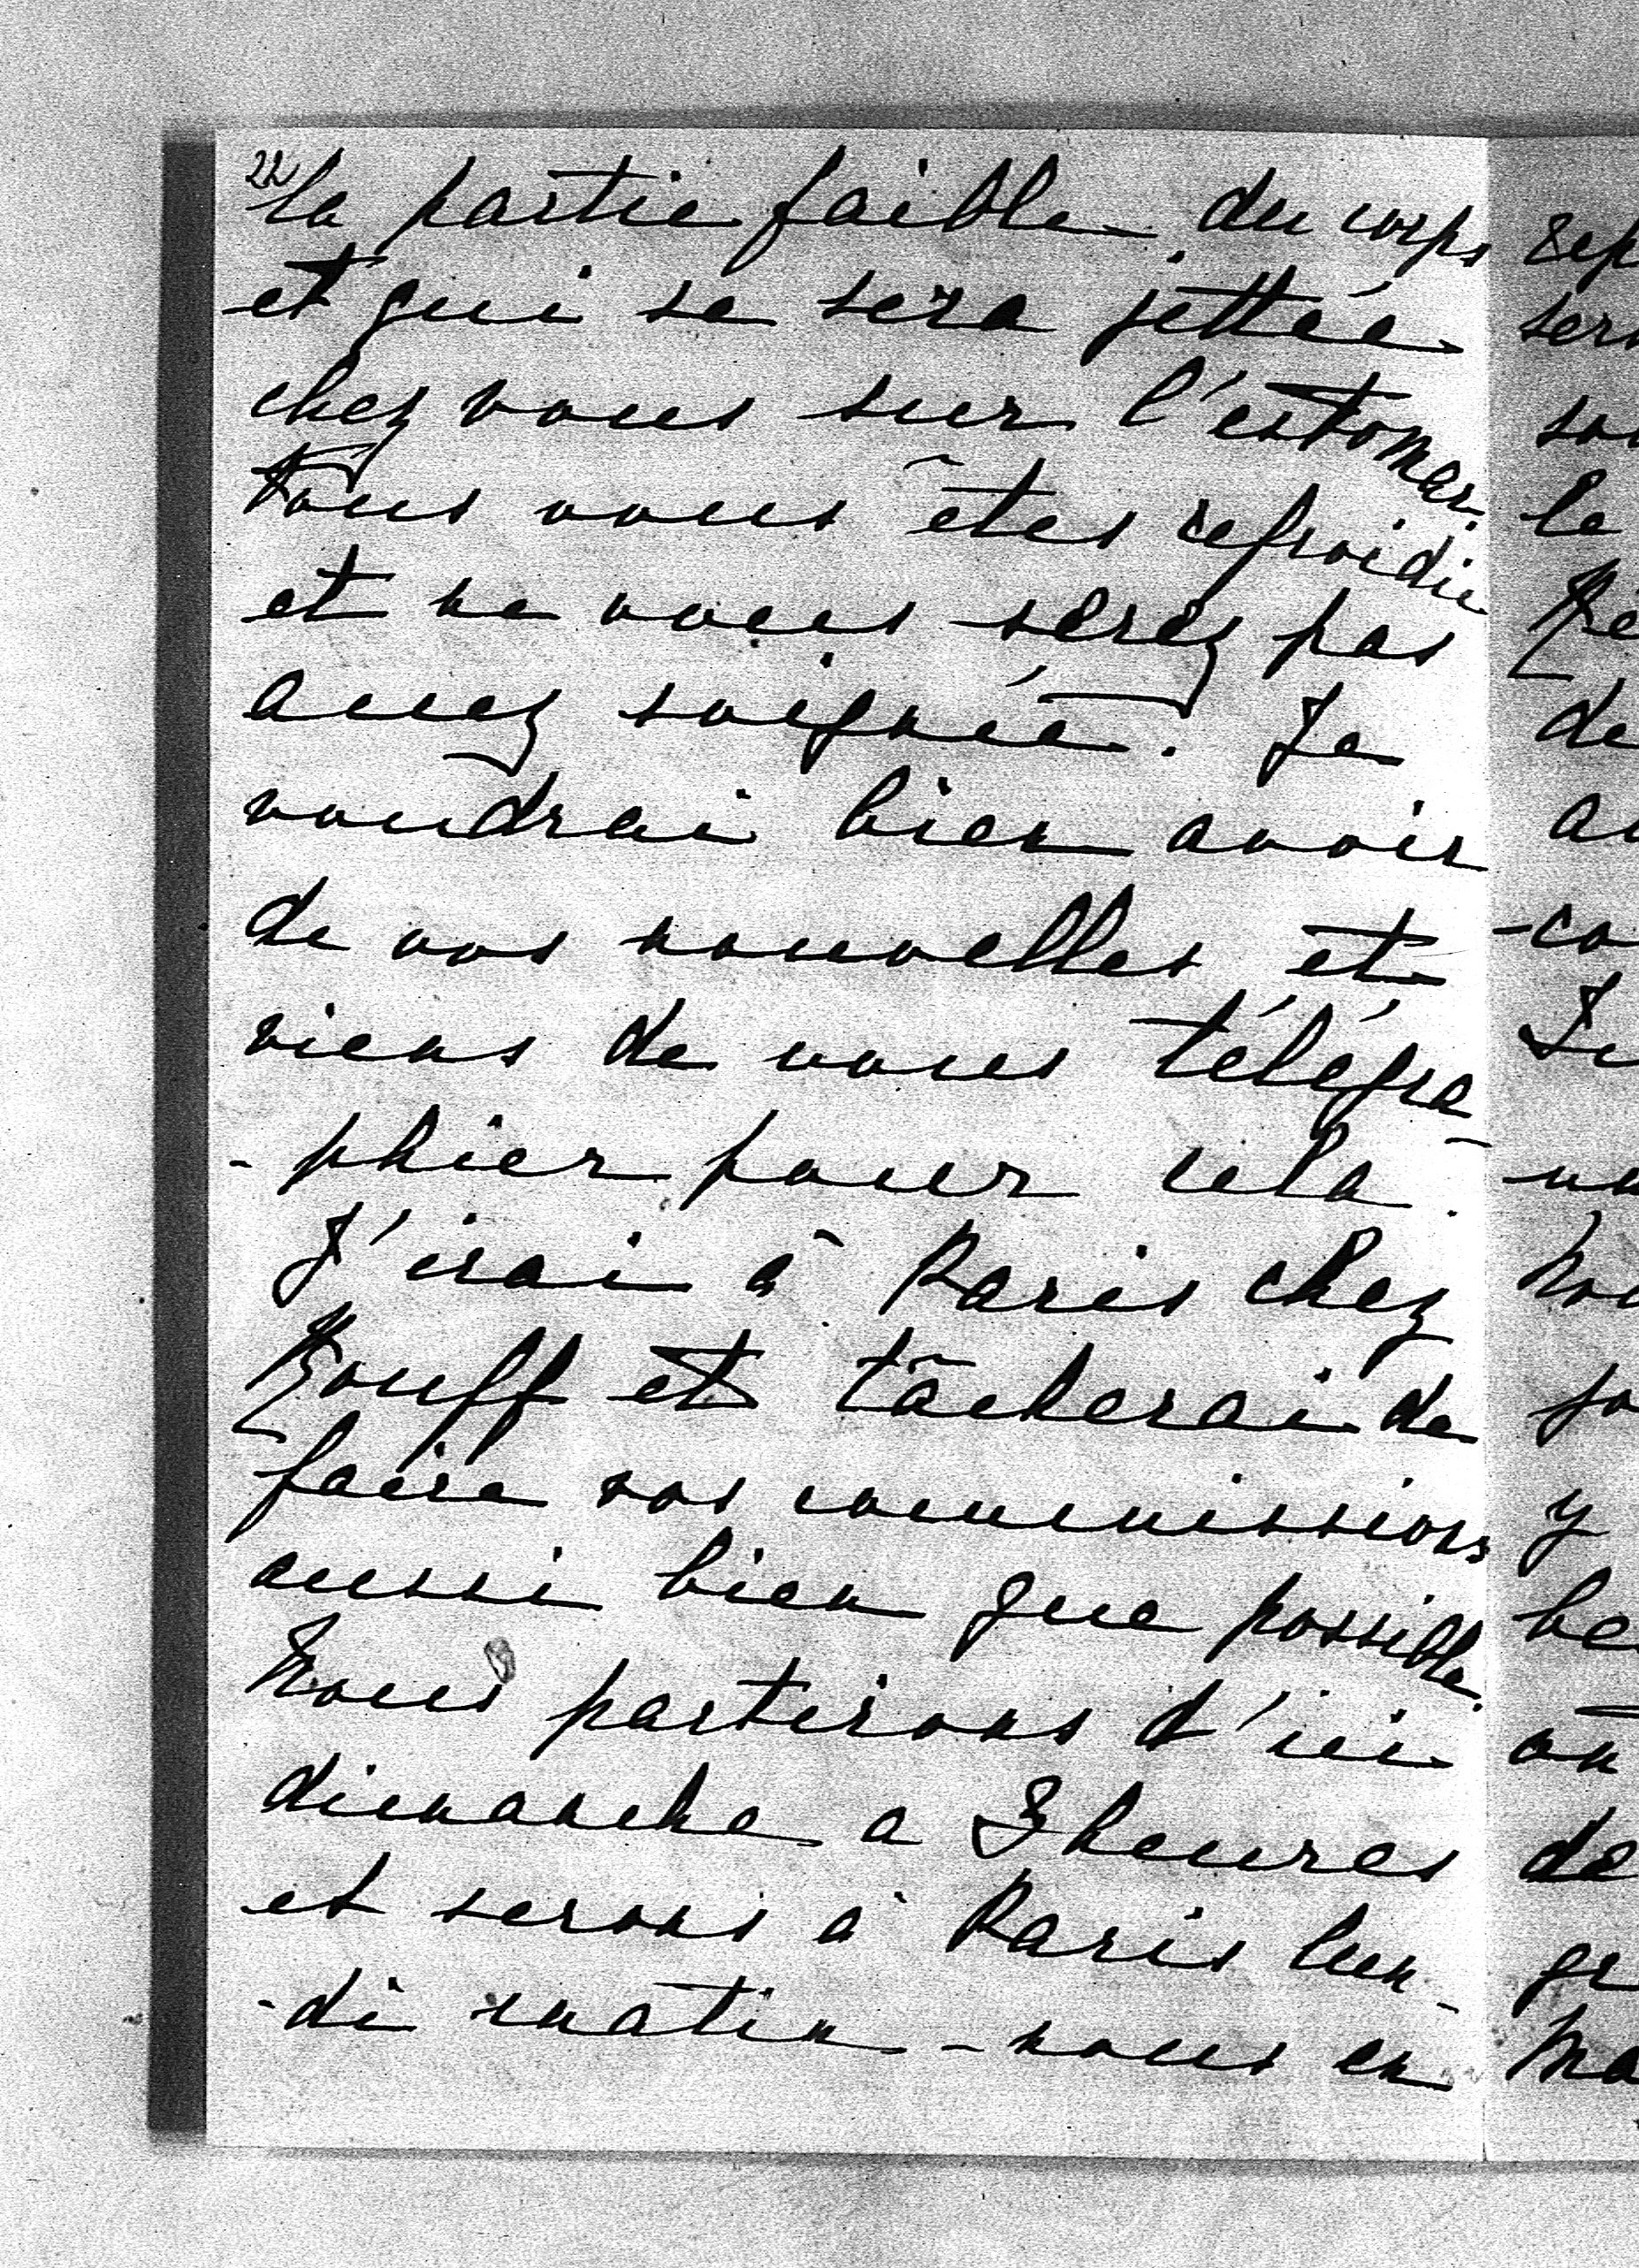 22
la partie faible du corps
et qui se sera jettée
chez vous sur l'estomac.
Vous vous êtes refroidie
et ne vous serez pas
assez soignée. Je
voudrai bien avoir
de vos nouvelles et
viens de vous télégra-
-phier pour cela.
J'irai à Paris chez
Rouff et tâcherai de
faire vos commissions
aussi bien que possible.
Nous partirons d'ici
dimanche a 3 heures
et serons à Paris lun-
-di matin - nous en